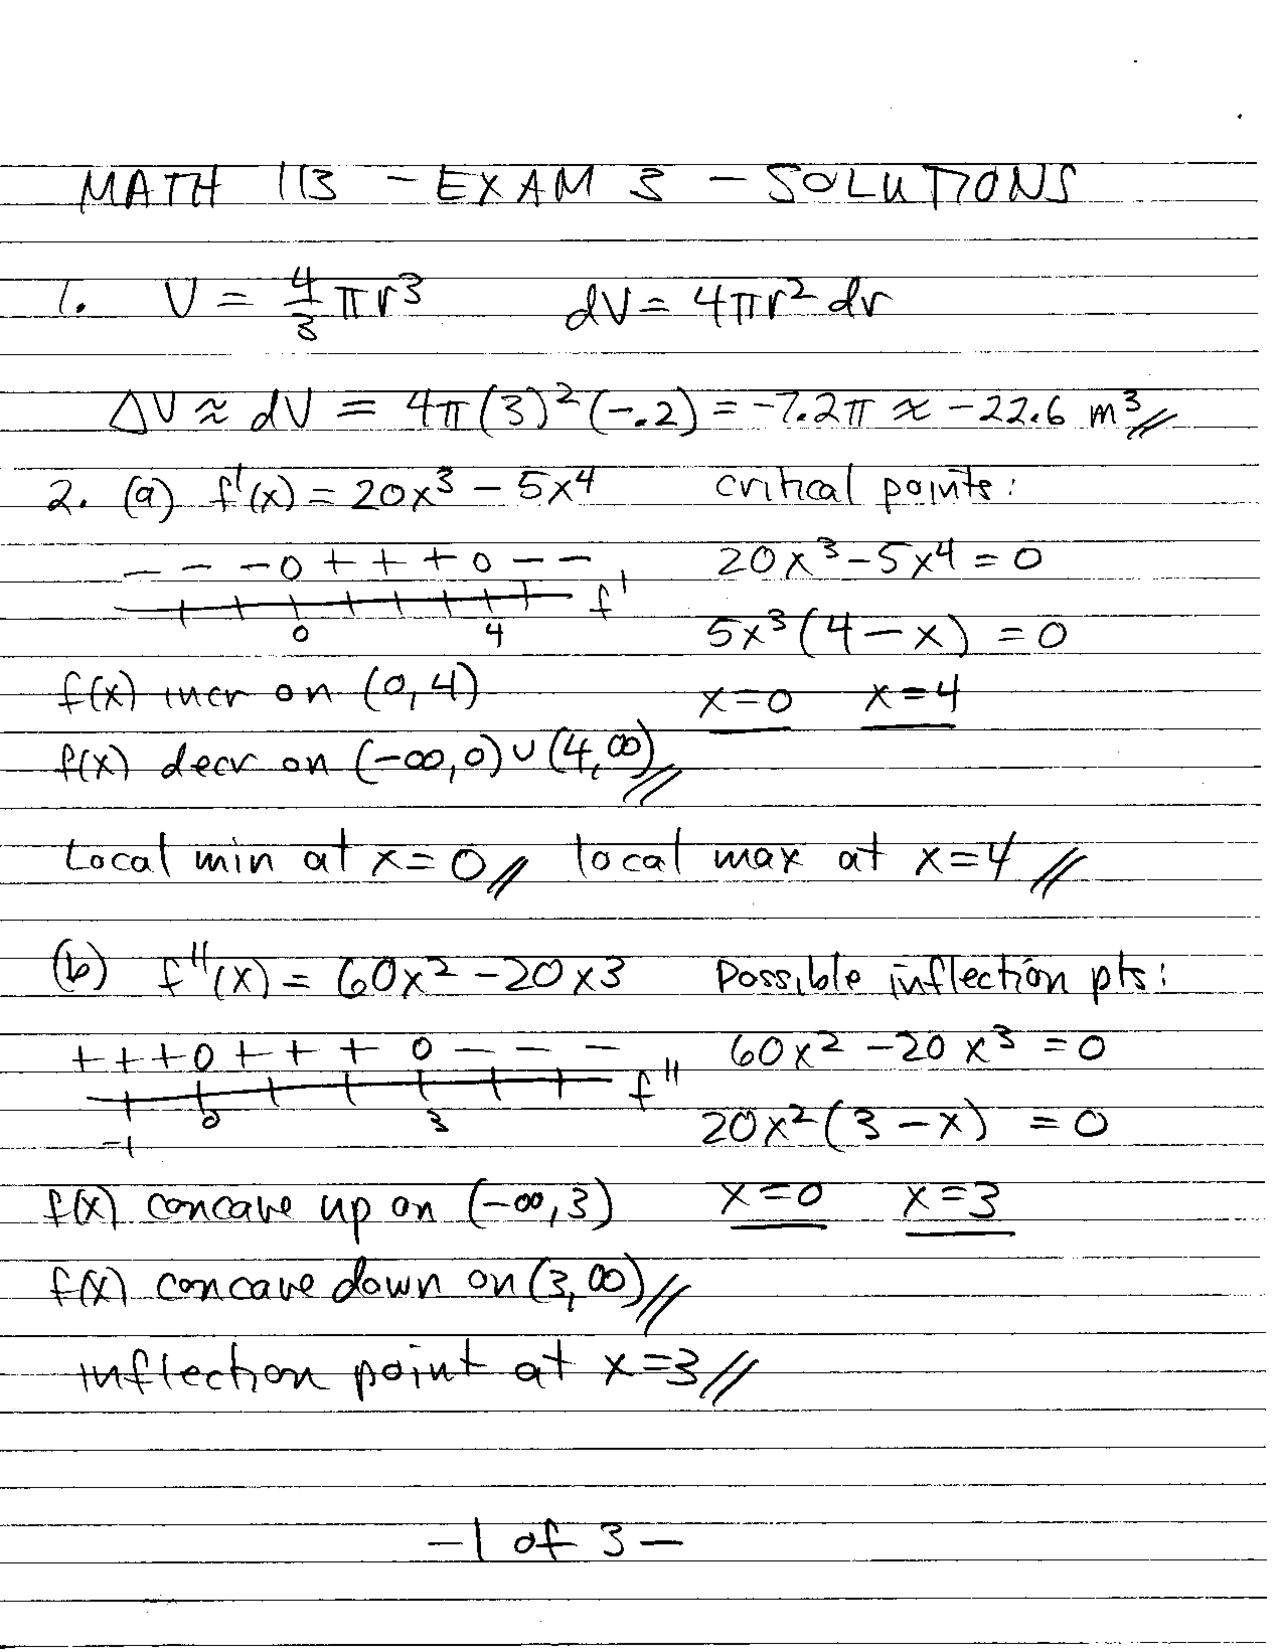 MATH 113 - EXAM 3 - SOLUTIONS
1. V = 4/3 πr³ dV = 4πr² dr
ΔV ≈ dV = 4π(3)²(-.2) = -7.2π ≈ -22.6 m³ //
2. (a) f'(x) = 20x³ - 5x⁴ critical points:
- - - 0 + + + 0 - - 20x³ - 5x⁴ = 0
f'
0 4 5x³(4 - x) = 0
f(x) incr on (0,4) x=0 x=4
f(x) decr on (-∞,0) ∪ (4,∞) //
Local min at x=0 // local max at x=4 //
(b) f''(x) = 60x² - 20x3 Possible inflection pts:
+ + + 0 + + + 0 - - - 60x² - 20x³ = 0
f''
-1 0 3 20x²(3 - x) = 0
f(x) concave up on (-∞,3) x=0 x=3
f(x) concave down on (3,∞) //
inflection point at x=3 //
- 1 of 3 -